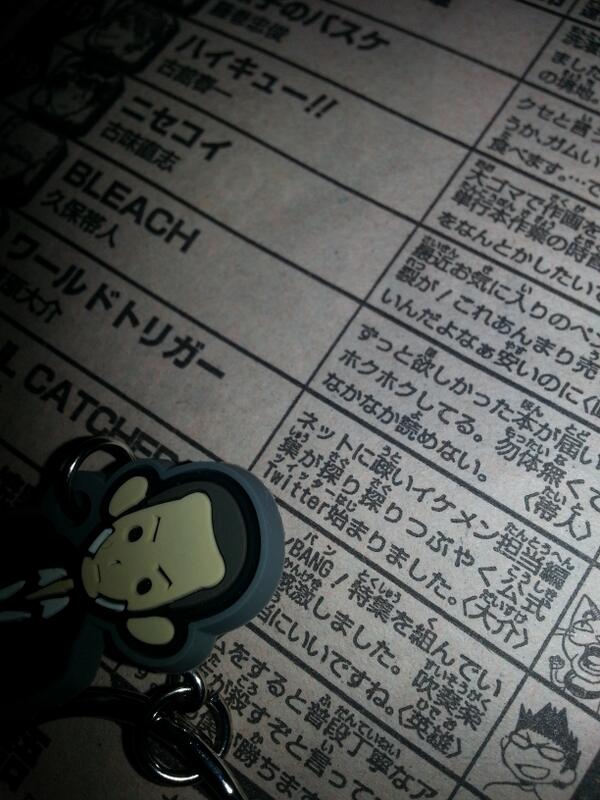 子のバスケ
藤巻忠俊
ハイキュー!!
古舘春一
ニセコイ
古味直志
BLEACH
久保帯人
ワールドトリガー
大介
L CATCHER
ました
の境地。
クセと言う
うか、ガムい
食べます。…で
大ゴマで作画を
単行本作業の時
をなんとかしたい
最近お気に入りのペン
裂が!これあんまり売
いんだよなぁ安いのに
ずっと欲しかった本が届い
ホクホクしてる。勿体無くて
なかなか読めない。〈帯人〉
ネットに疎いイケメン担当編
集が探り探りつぶやく公式
Twitter始まりました。〈大介〉
BANG!特集を組んでい
感激しました。吹奏楽
当にいいですね。〈英雄〉
をすると普段丁寧なア
が殺すぞと言って
勝ちま